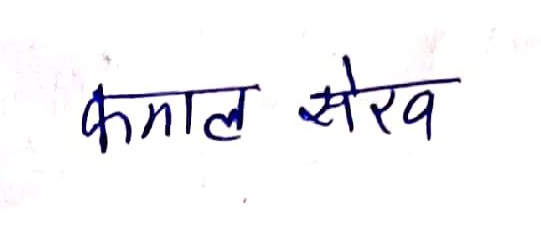 कमाल सेख